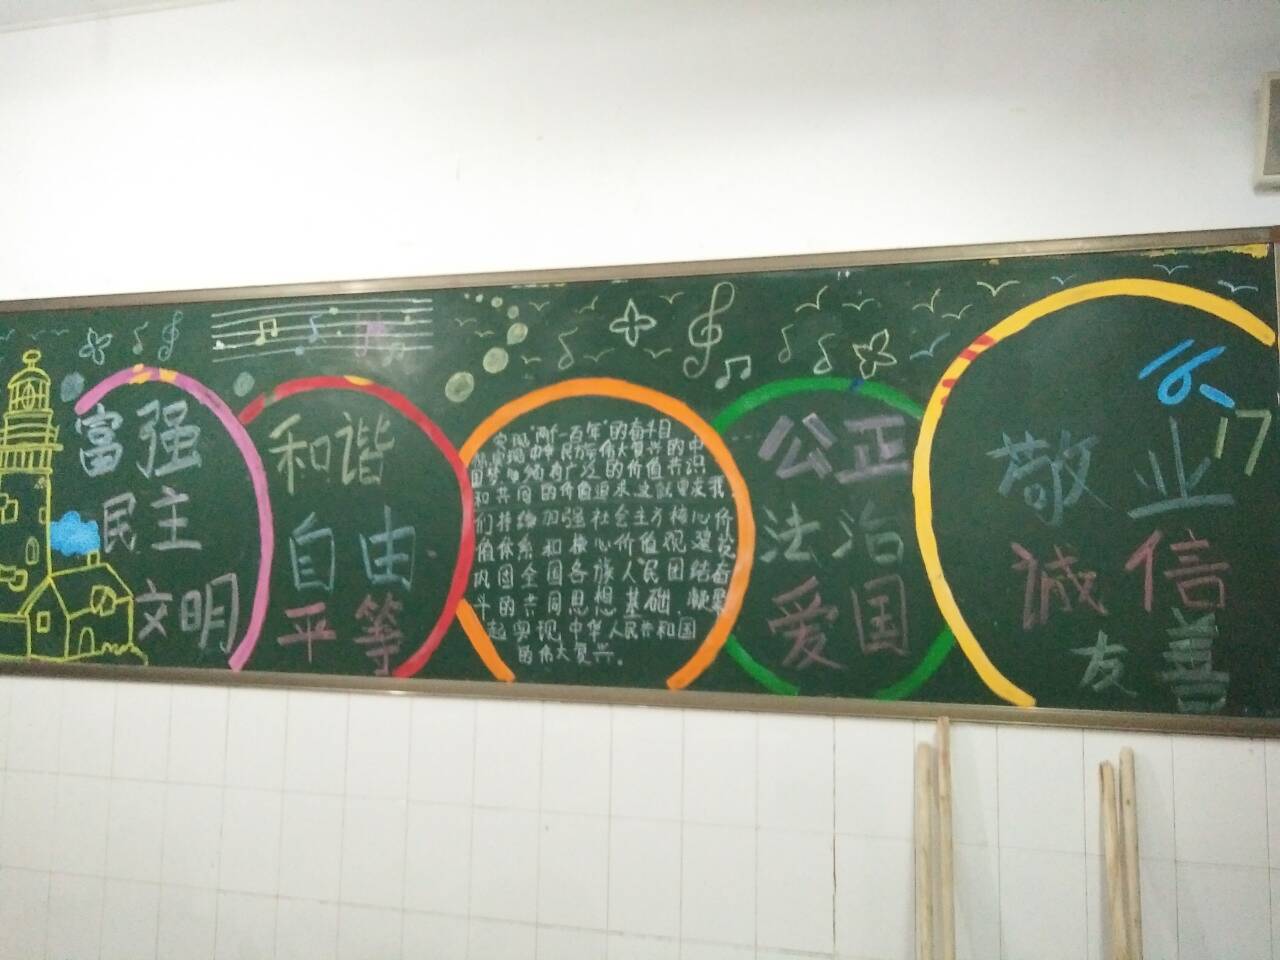 富强
民主
文明
和谐
自由
平等
实现“两个一百年”的奋斗目
标实现中华民族伟大复兴的中
国梦必须有广泛的价值共识
和共同的价值追求这就要求我
们持续加强社会主义核心价
值体系和核心价值观建设
巩固全国各族人民团结奋
斗的共同思想基础,凝聚
起实现中华人民共和国
的伟大复兴。
公正
法治
爱国
17
敬业
诚信
友善